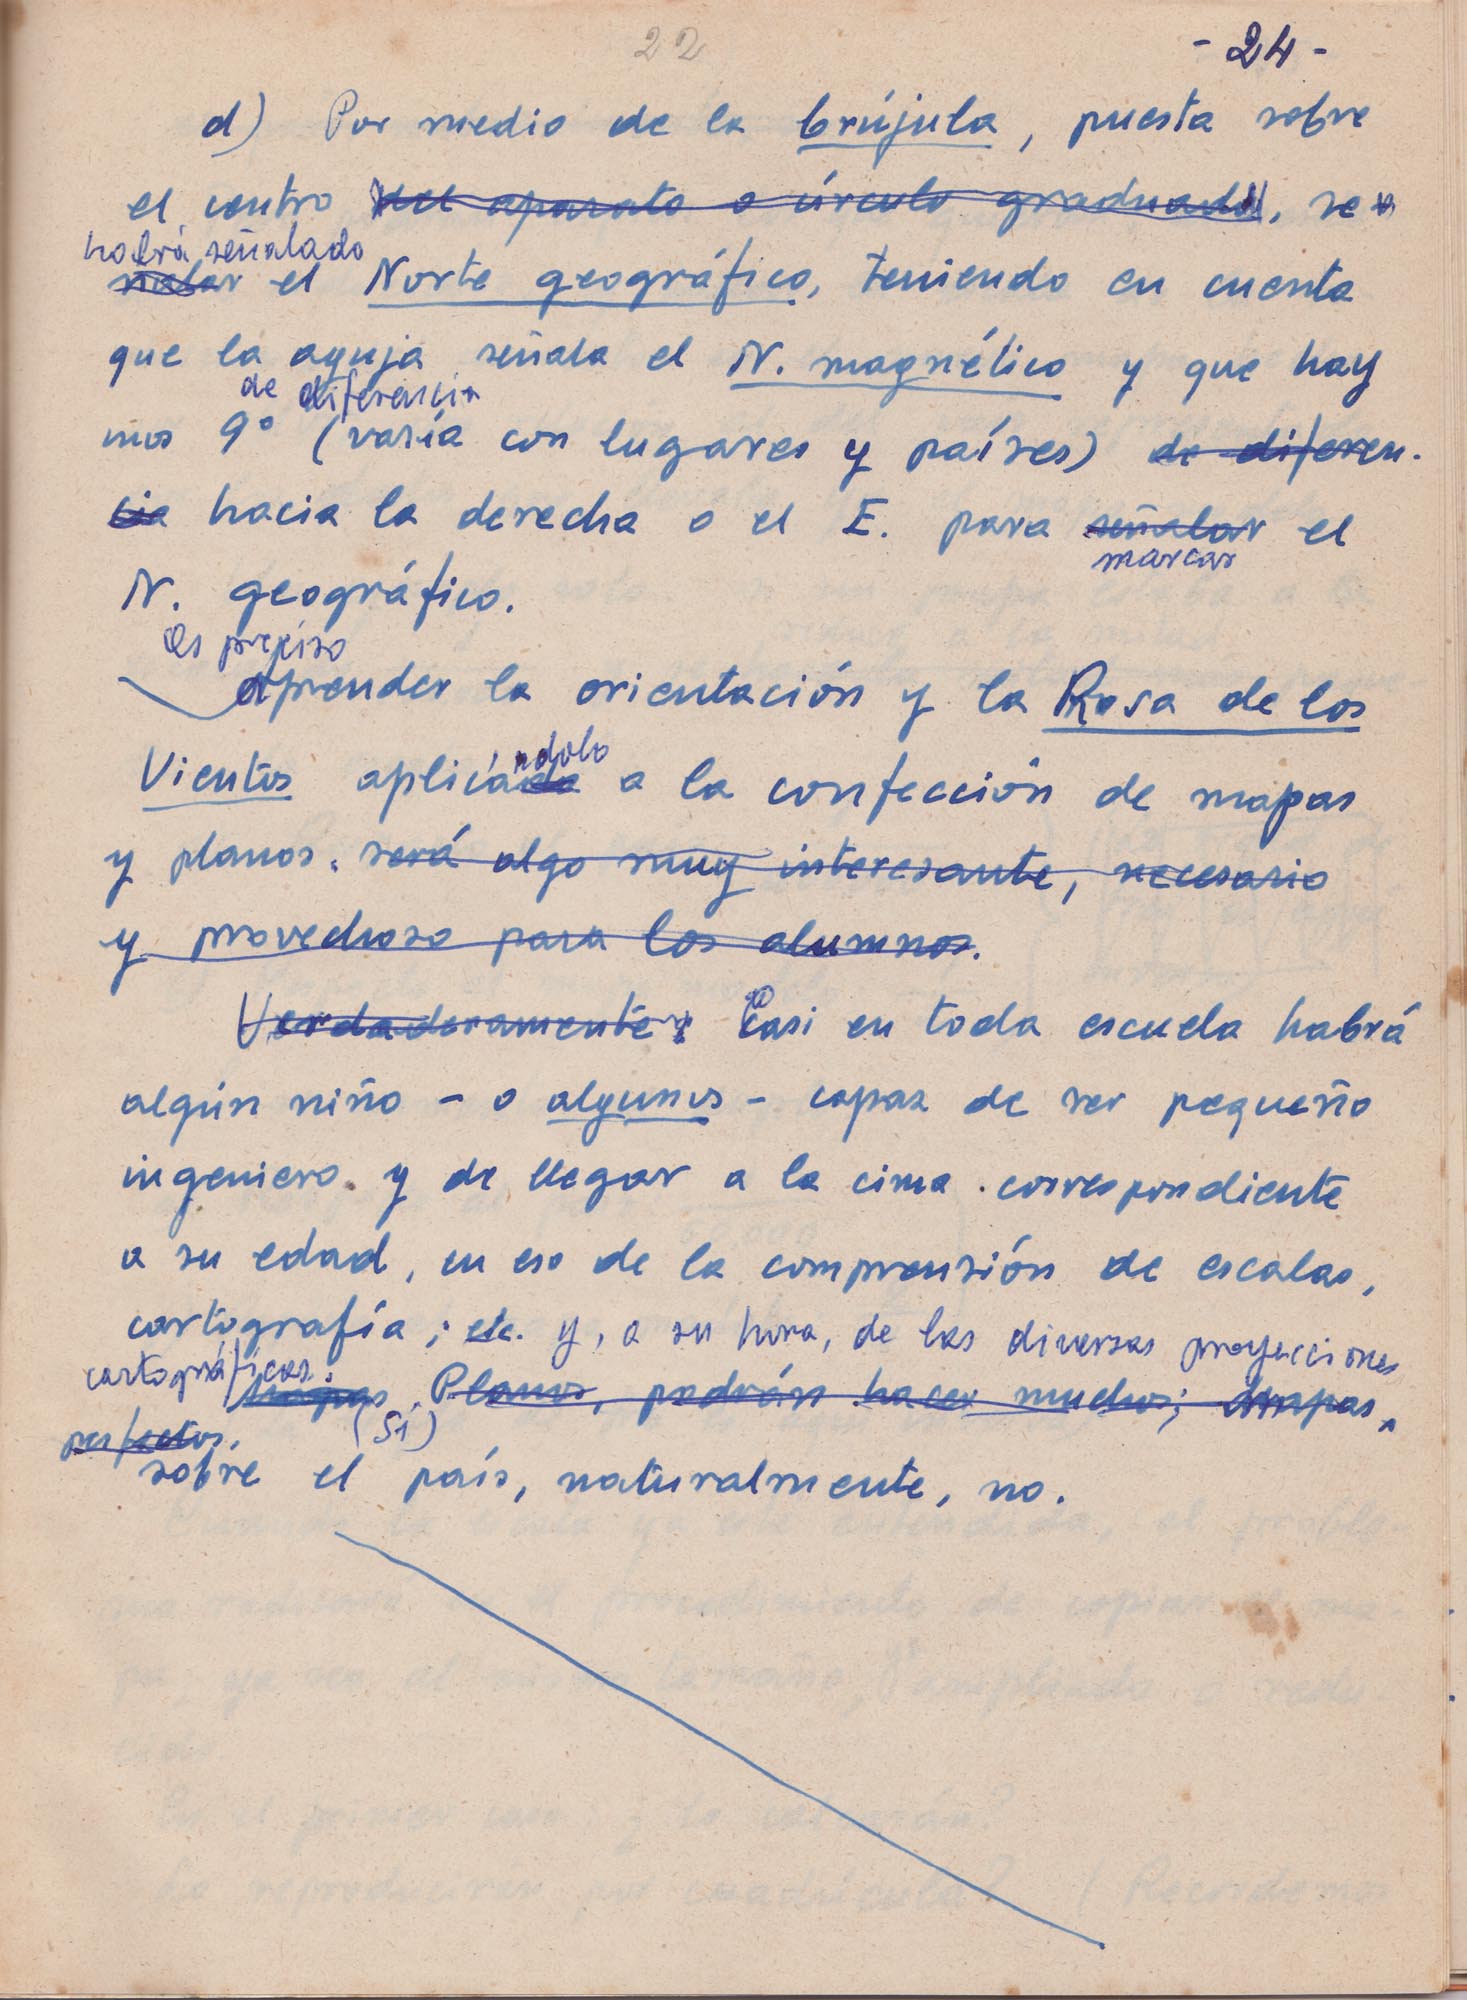 22
- 24 -
d) Por medio de la brújula, puesta sobre
el centro del aparato o círculo graduado, se
habrá señalado
ñalar el Norte geográfico, teniendo en cuenta
que la aguja señala el N. magnético y que hay
de diferencia
unos 9° (varía con lugares y países) de diferen-
cia hacia la derecha o el E. para señalar el
marcar
N. geográfico.
Es preciso
aprender la orientación y la Rosa de los
ndolo
Vientos aplicada a la confección de mapas
y planos. será algo muy interesante, necesario
y provechoso para los alumnos.
Verdaderamente, Casi en toda escuela habrá
algún niño - o algunos - capaz de ser pequeño
ingeniero y de llegar a la cima correspondiente
a su edad, en eso de la comprensión de escalas,
cartografía, etc. y, a su hora, de las diversas proyecciones
cartográficas.
Mapas. Planos, podrán hacer muchos; mapas
perfectos.
(Si)
sobre el país, naturalmente, no.